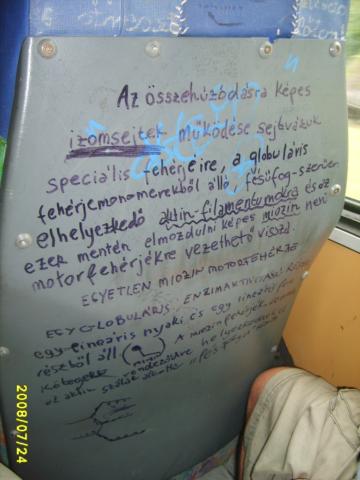 Az összehúzódásra képes
izomsejtek működése sejtvázuk
speciális fehérjeire, a globuláris
fehérjemonomerekből álló, fésűfog-szerűen
elhelyezkedő aktin-filamentumokra és az
ezek mentén elmozdulni képes miozin nevű
motorfehérjékre vezethető vissza.
EGYETLEN MIOZIN MOTORFEHÉRJE
EGY GLOBULÁRIS, ENZIMAKTIVITÁSÚ
egy lineáris nyaki és egy lineáris
részből áll A miozinfehérjék
kötegekbe rendeződve helyezkednek
az aktin szálak
2008/07/24